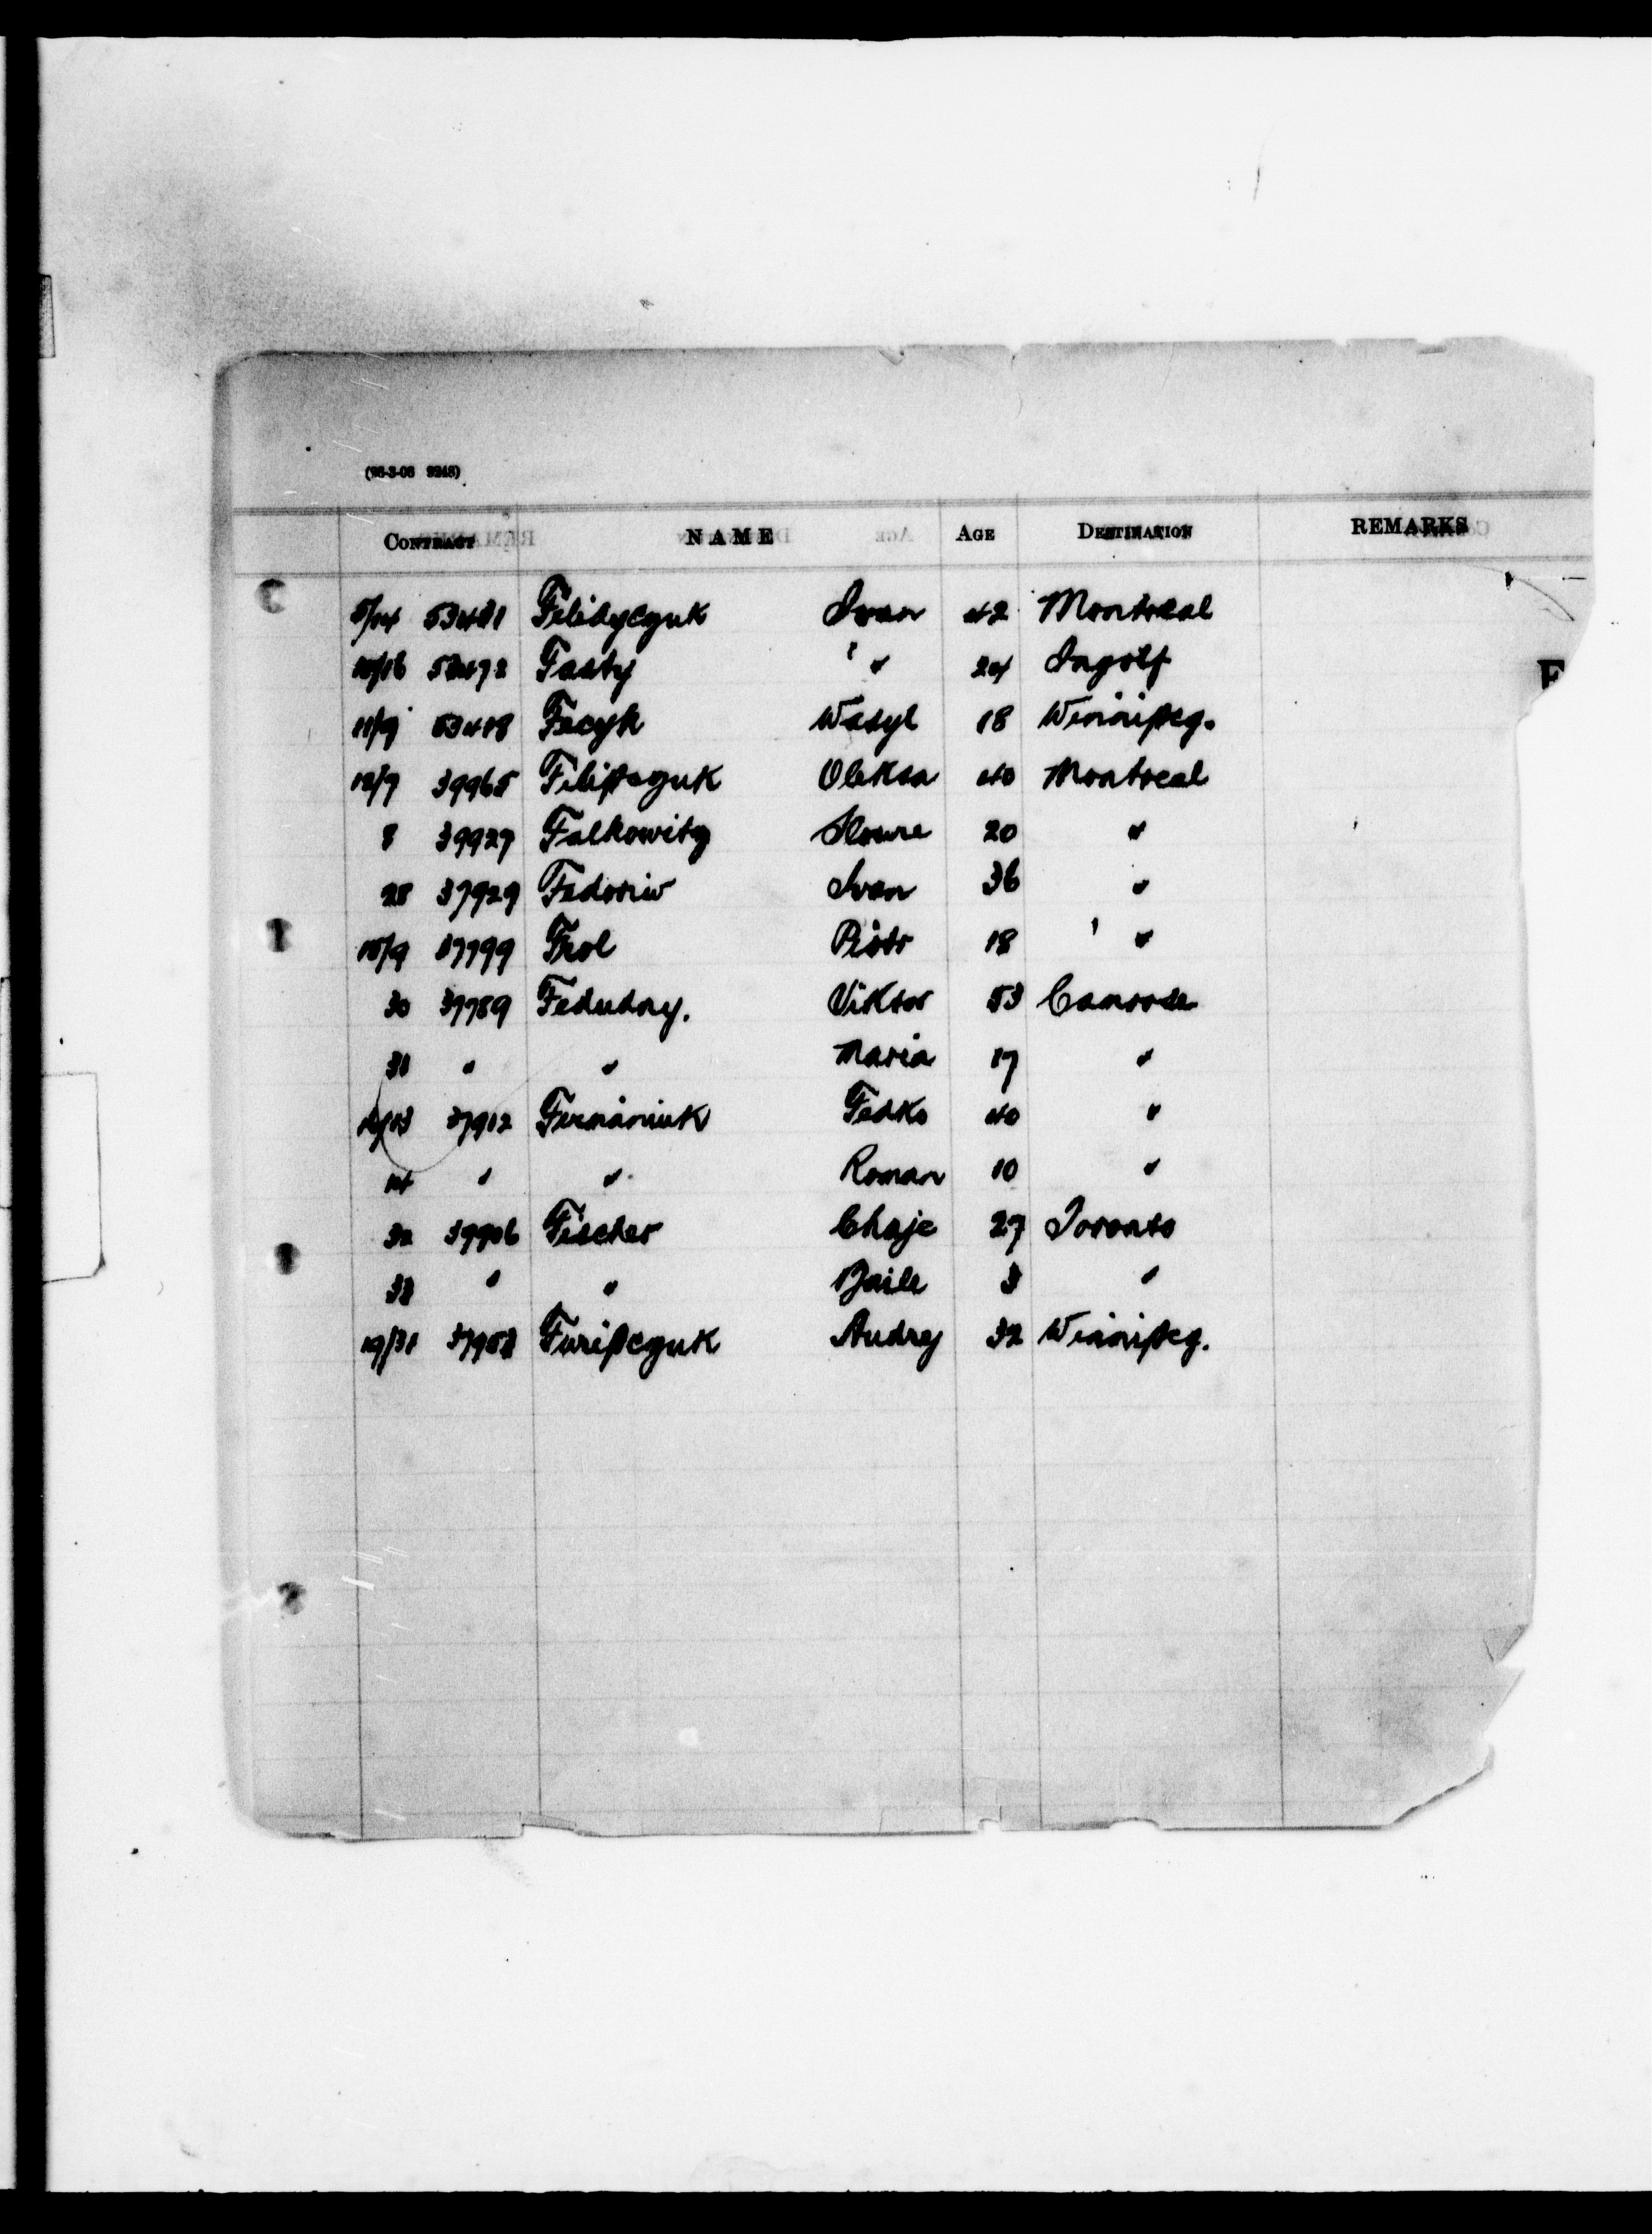 (26-3-06 9248)
CONTRACT NAME AGE DESTINATION REMARKS
5/14 53481 Filidyczuk Iwan 42 Montreal
10/16 53472 Fasty " 24 Ingolf
F
11/9 53418 Fecyk Wasyl 18 Winnipeg.
12/7 39965 Filipczuk Oleksa 40 Montreal
8 39927 Falkowitz 20 "
28 37929 Fedoriw Ivan 36 "
15/9 37799 Frol Piotr 18 "
30 37789 Fedudny. Viktor 53 Camrose
31 " " Maria 17 "
37912 Fermaniuk Fedko 40 "
14 " " Roman 10 "
32 39906 Fischer Chaje 27 Toronto
33 " " Baile 3 "
19/31 37953 Furipczuk Andrej 32 Winnipeg.